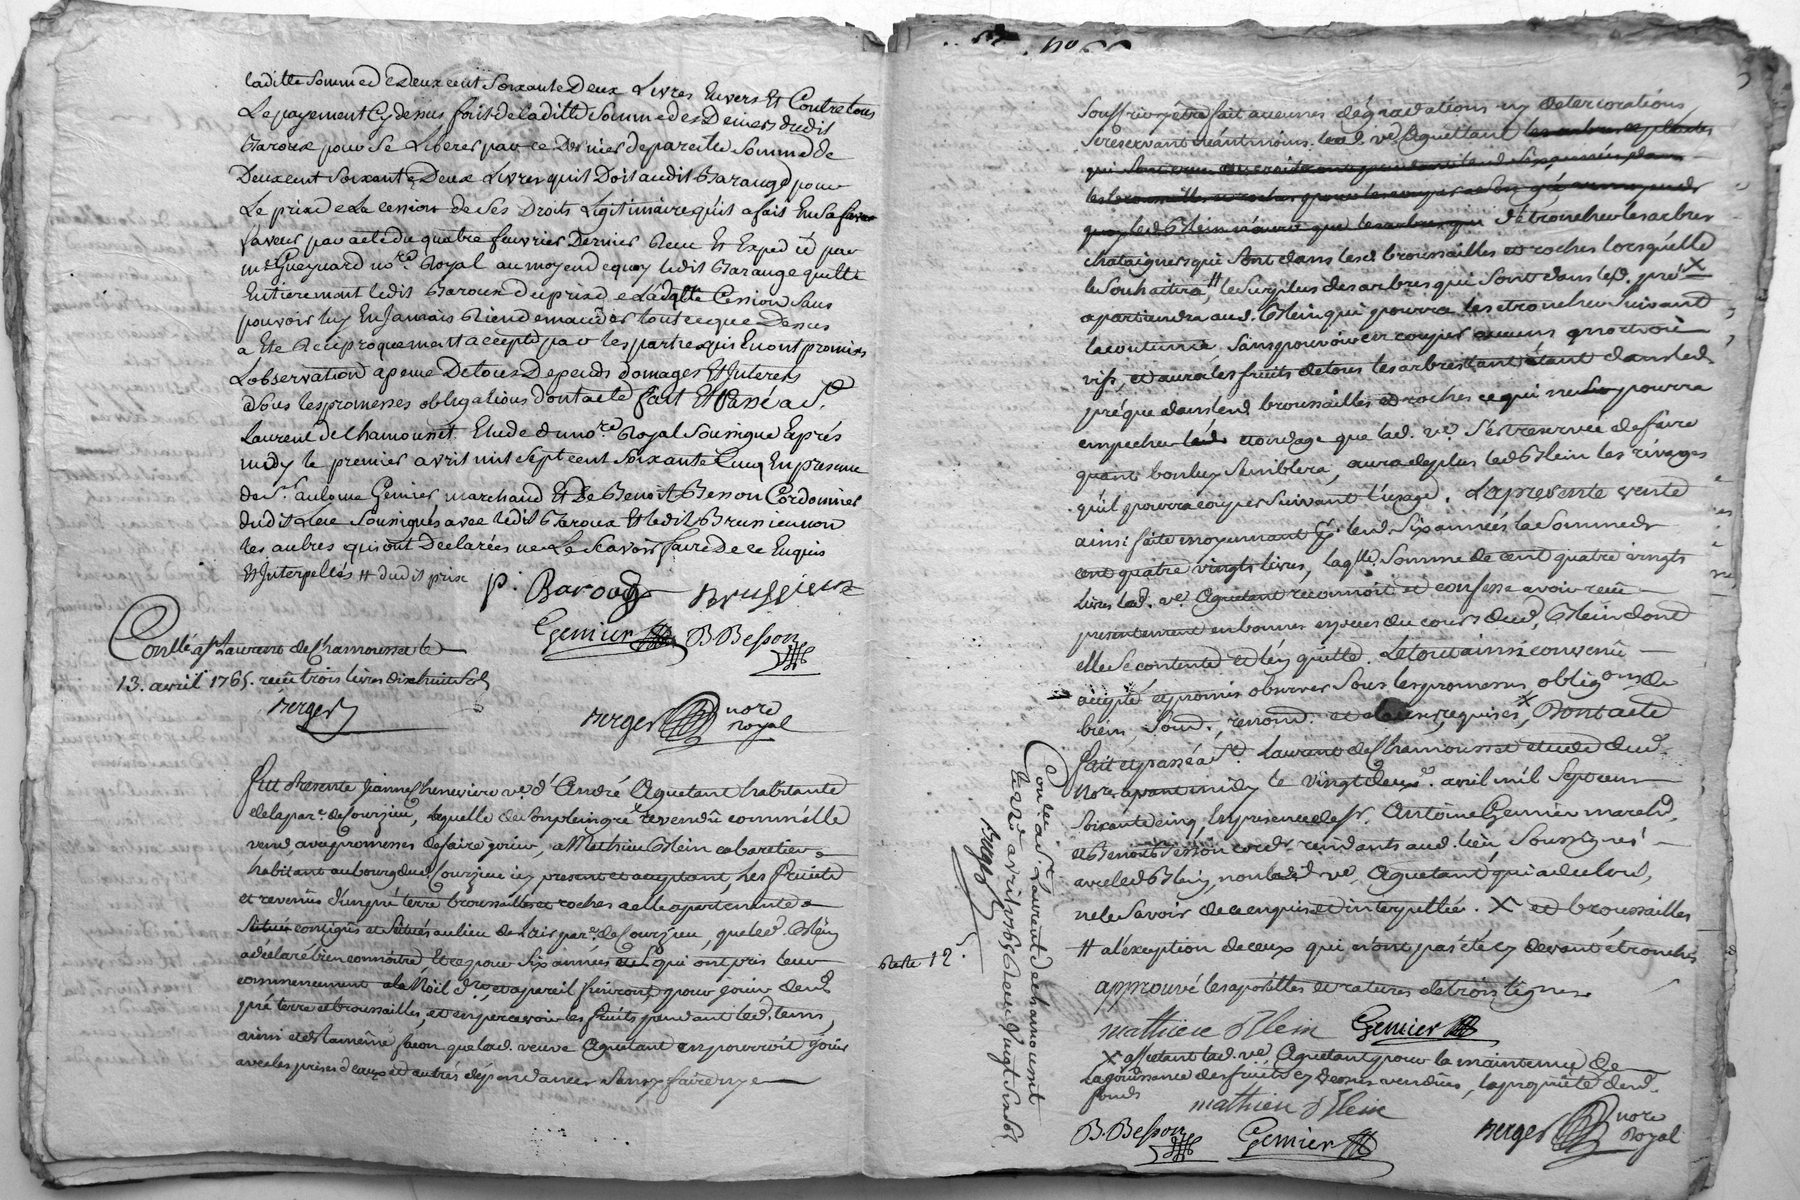 laditte somme de deux cent soixante deux Livres Envers Et Contre tous
Le payement Cy dessus fait de laditte Somme des Deniers dudit
Baroux pour se Liberer par ce Dernier de pareille Somme de
Deux cent soixante Deux Livres quil Doit audit Barange pour
Le prix de La cession de Ses Droits Légitimaire quil a fait En sa
faveur par acte du quatre fevrier Dernier Recu Et Expedié par
me Gueynard nore Royal au moyend e quoy ledit Barange quitte
Entierement ledit Baroux du prix de Laditte Cession Sans
pouvoir luy En Jamais Rien demander tout ce que Dessus
a Ete Reciproquement accepté par les parties qui En ont promis
Lobservation a peine De tous Depends domages Et Interets
sous les promesses obligations Dont acte fait Et Passé a St
Laurent de Chamousset Etude du nore Royal Soussigné Exprés
midy le premier avril mil sept cent soixante Cinq En presence
de sr antoine Gemier marchand Et De Benoit Besson Cordonnier
dudit Lieu Soussignés avec ledit Baroux Et ledit Brussieu non
les autres qui ont Declarées ne Le Scavoir faire De ce Enquis
Et Interpellés # dudit prix
P. Baroud Brussieux
Gemier B Besson
Conllé a st Laurent de Chamousset le
13. avril 1765. recu trois livres dix huit sols
Berger
Berger nore Royal
fut Presente Jeanne Cheneviere ve d'André Aguetant habitante
de la par. de Courzieu, laquelle de son plein gré a vendû comm'elle
vend, avec promesses de faire joüir, a Mathieu Blein cabaretier
habitant au bourg dud. Courzieu icy present et acceptant, Les fruits
et revenus d'un pré terre broussailles et roches a elle apartenants
contigus et situés au lieu de Lair par. de Courzieu, que led. Blein
a déclaré bien connoitre Et ce pour six années qui ont pris leur
commencement a la Noël dre, et a pareil finiront, pour joüir dud.
pré terre et broussailles, et en percevoir les fruits pendant led. tems,
ainsi et de la même façon que lad. veuve Aguetant en pourroit joüir
avec les prises d'eaux et autres dépendances sans y faire ny
souffrir y être fait aucunes dégradations ny deteriorations,
se reservant néantmoins lad. ve Aguettant les arbres
d'étroncher les arbres
chataigners qui sont dans lesd. broussailles et roches lorsqu'elle
le souhaitra, # le surplus des arbres qui sont dans led. pré X
apartiendra aud. Blein qui pourra les etroncher suivant
la coutume. Sans pouvoir en couper aucuns mort ou
vifs, et aura les fruits de tous les arbres étant dans led.
pré que dans lesd. broussailles et roches ce qui ne pourra
empecher etondage que lad. ve s'est reservée de faire
quant bon luy semblera, aura de plus led. Blein les rivages
qu'il pourra couper suivant l'usage. La presente vente
ainsi faite moyennant pr. lesd. six années la somme de
cent quatre vingts livres, laqlle somme de cent quatre vingts
Livres lad. ve Aguetant reconnoit et confesse avoir reçu
presentement en bonnes especes du cours dud. Blein dont
elle se contente et l'en quitte. Le tout ainsi convenû
accepté et promis observer sous les promesses, obligons, de
bien, soum., renond. et clauses requises, X Dont acte
fait et passé a St. Laurent de Chamousset etude dud.
Nore. avant midy le vingt deuxe. avril mil sept cent
soixante cinq, En presence de sr. Antoine Gemier march.,
et Benoit Besson cord. residants aud. lieu soussignés
avec led. Blein, non lad. ve Aguetant, qui a declaré,
ne le savoir de ce enquise et interpellée. X et broussailles
# al'exception de ceux qui n'ont pas été cy devant étronchés
approuvé les apostilles et ratures de trois lignes
mathieu Blein Gemier
X assistant lad. ve Aguetant pour la maintenue de
la joüissance des fruits cy dessus vendus, la proprieté dud.
fonds
mathieu Blein
B. Besson Gemier Berger nore Royal
Conllé a st. Laurent de chamousset
le 22 avril 1765 Recu vingt six sols
Berger
Reste 12s